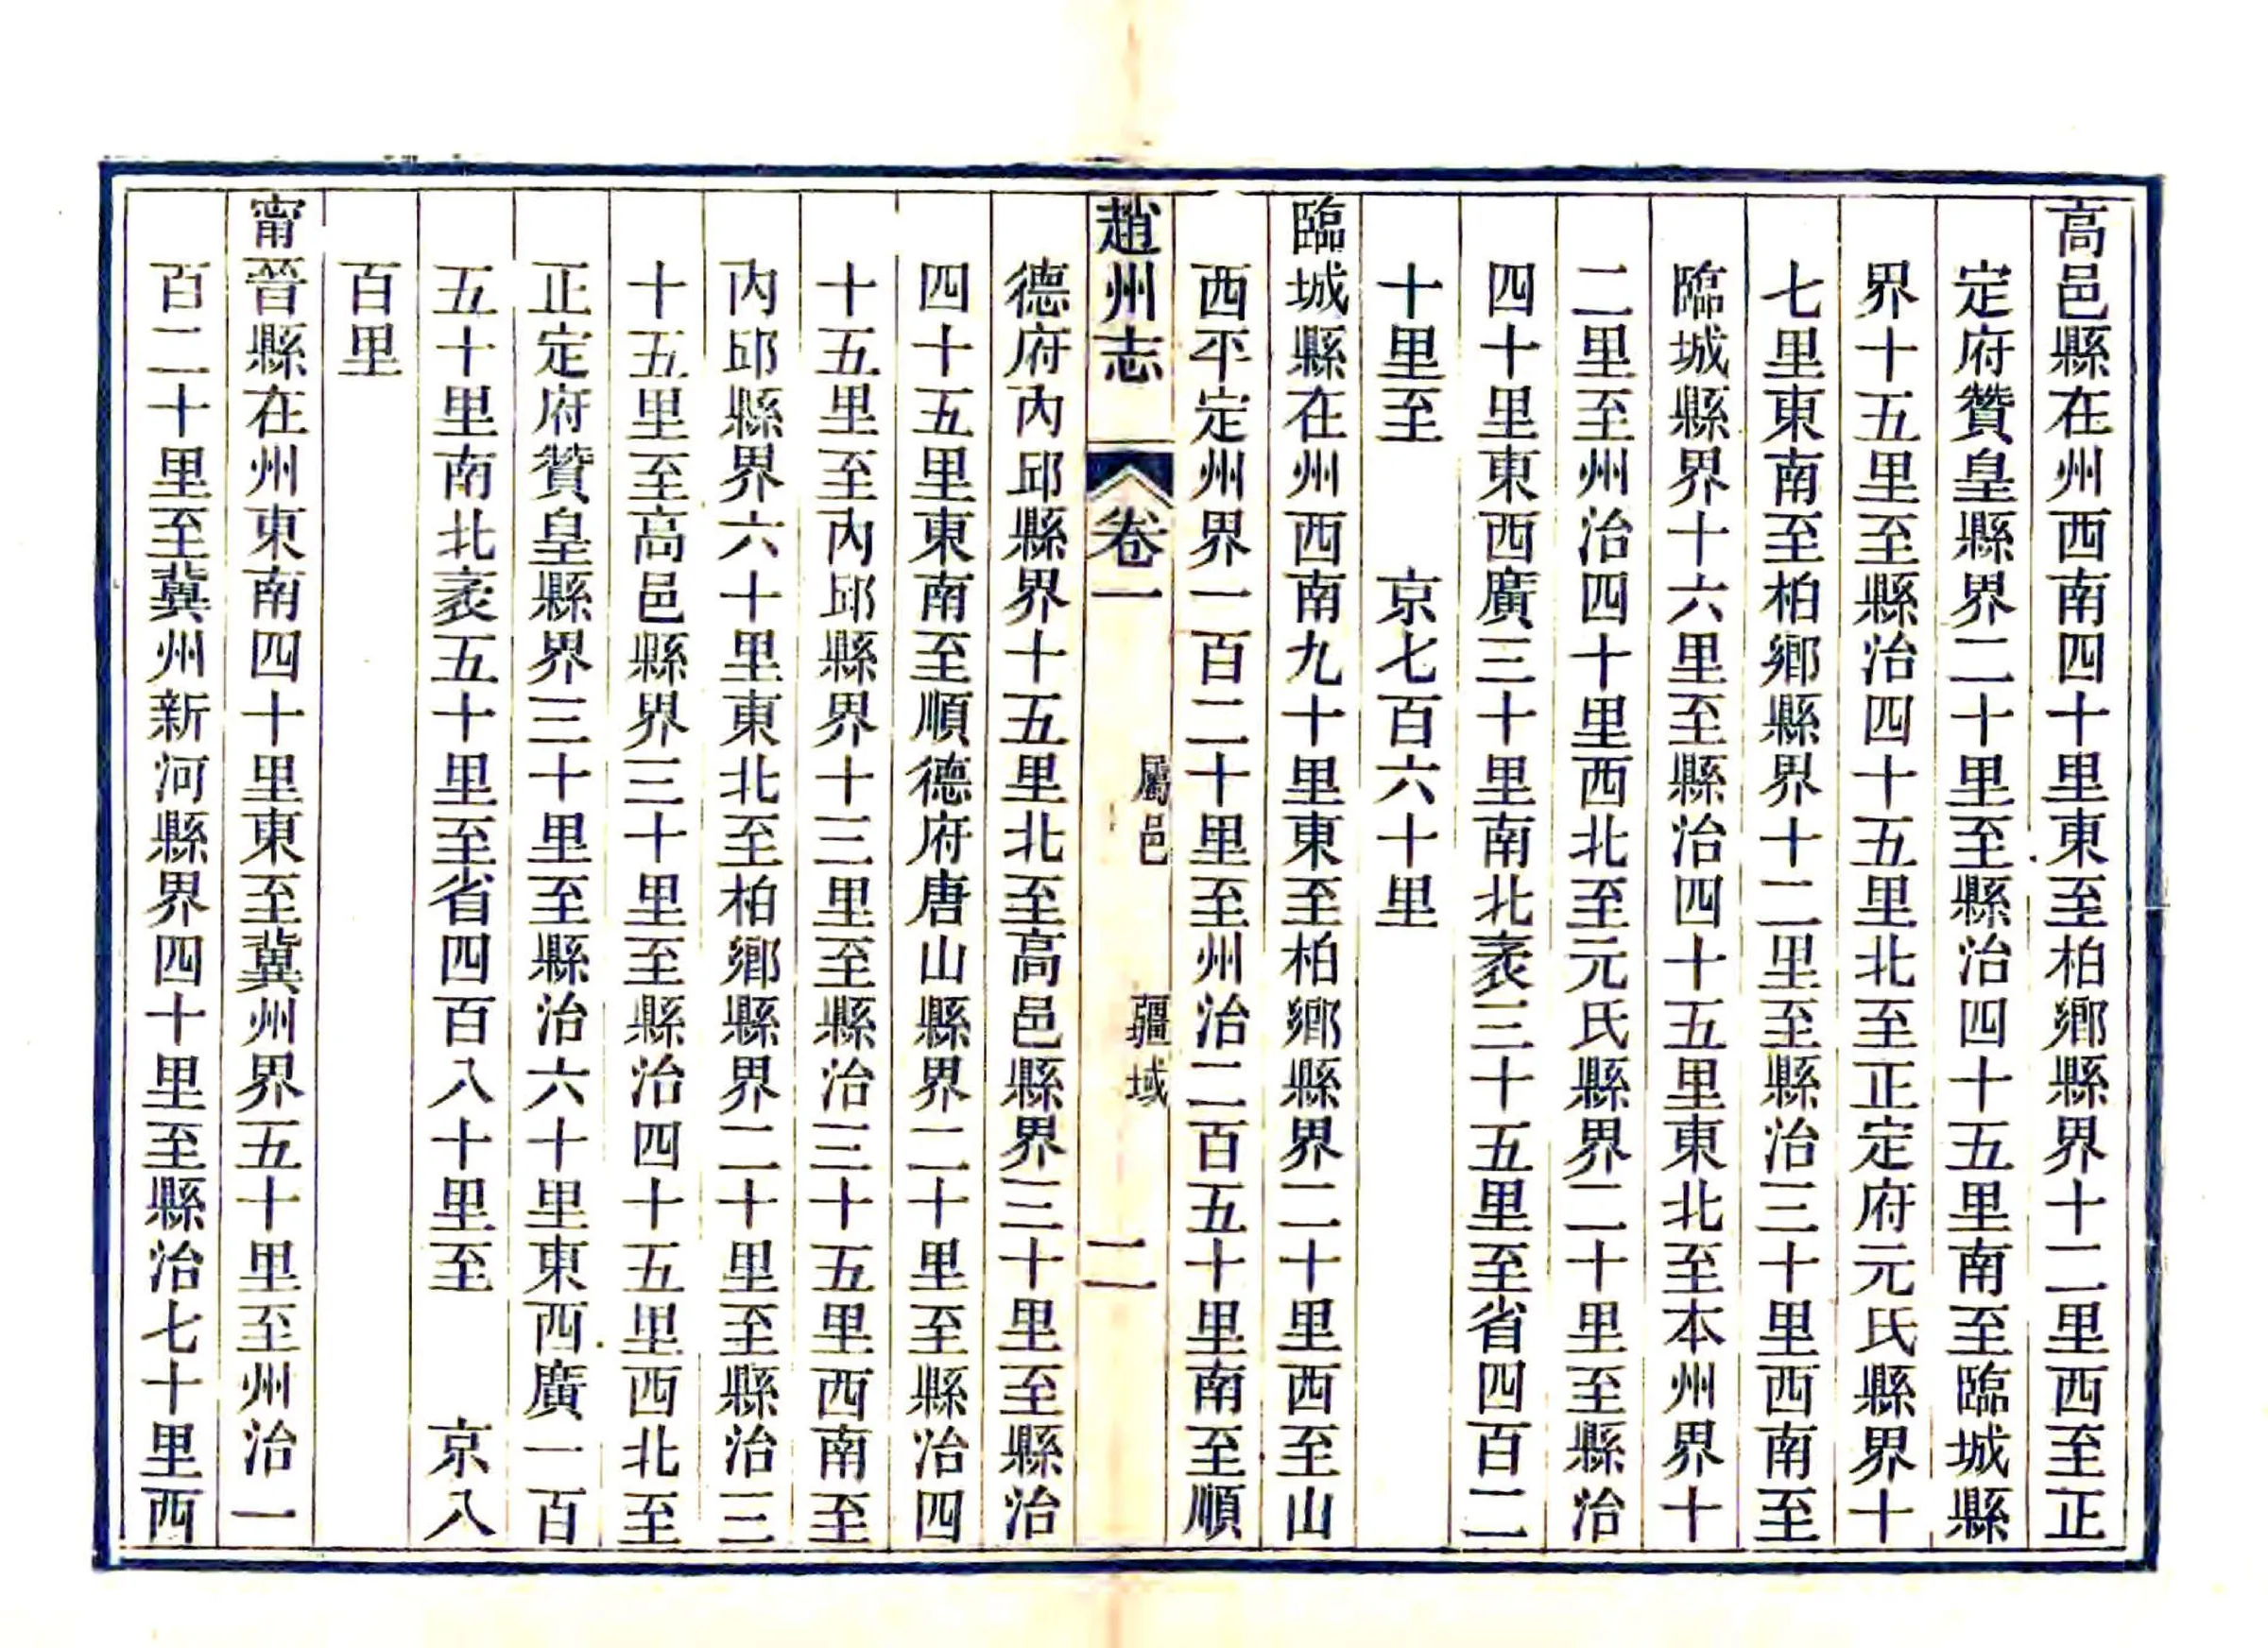 高邑縣在州西南四十里東至柏鄉縣界十二里西至正
定府贊皇縣界二十里至縣治四十五里南至臨城縣
界十五里至縣治四十五里北至正定府元氏縣界十
七里東南至柏鄉縣界十二里至縣治三十里西南至
臨城縣界十六里至縣治四十五里東北至本州界十
二里至州治四十里西北至元氏縣界二十里至縣治
四十里東西廣三十里南北袤三十五里至省四百二
十里至 京七百六十里
臨城縣在州西南九十里東至柏鄉縣界二十里西至山
西平定州界一百二十里至州治二百五十里南至順
趙州志 卷一 屬邑 疆域 二
德府內邱縣界十五里北至高邑縣界三十里至縣治
四十五里東南至順德府唐山縣界二十里至縣治四
十五里至內邱縣界十三里至縣治三十五里西南至
內邱縣界六十里東北至柏鄉縣界二十里至縣治三
十五里至高邑縣界三十里至縣治四十五里西北至
正定府贊皇縣界三十里至縣治六十里東西廣一百
五十里南北袤五十里至省四百八十里至 京八
百里
甯晉縣在州東南四十里東至冀州界五十里至州治一
百二十里至冀州新河縣界四十里至縣治七十里西